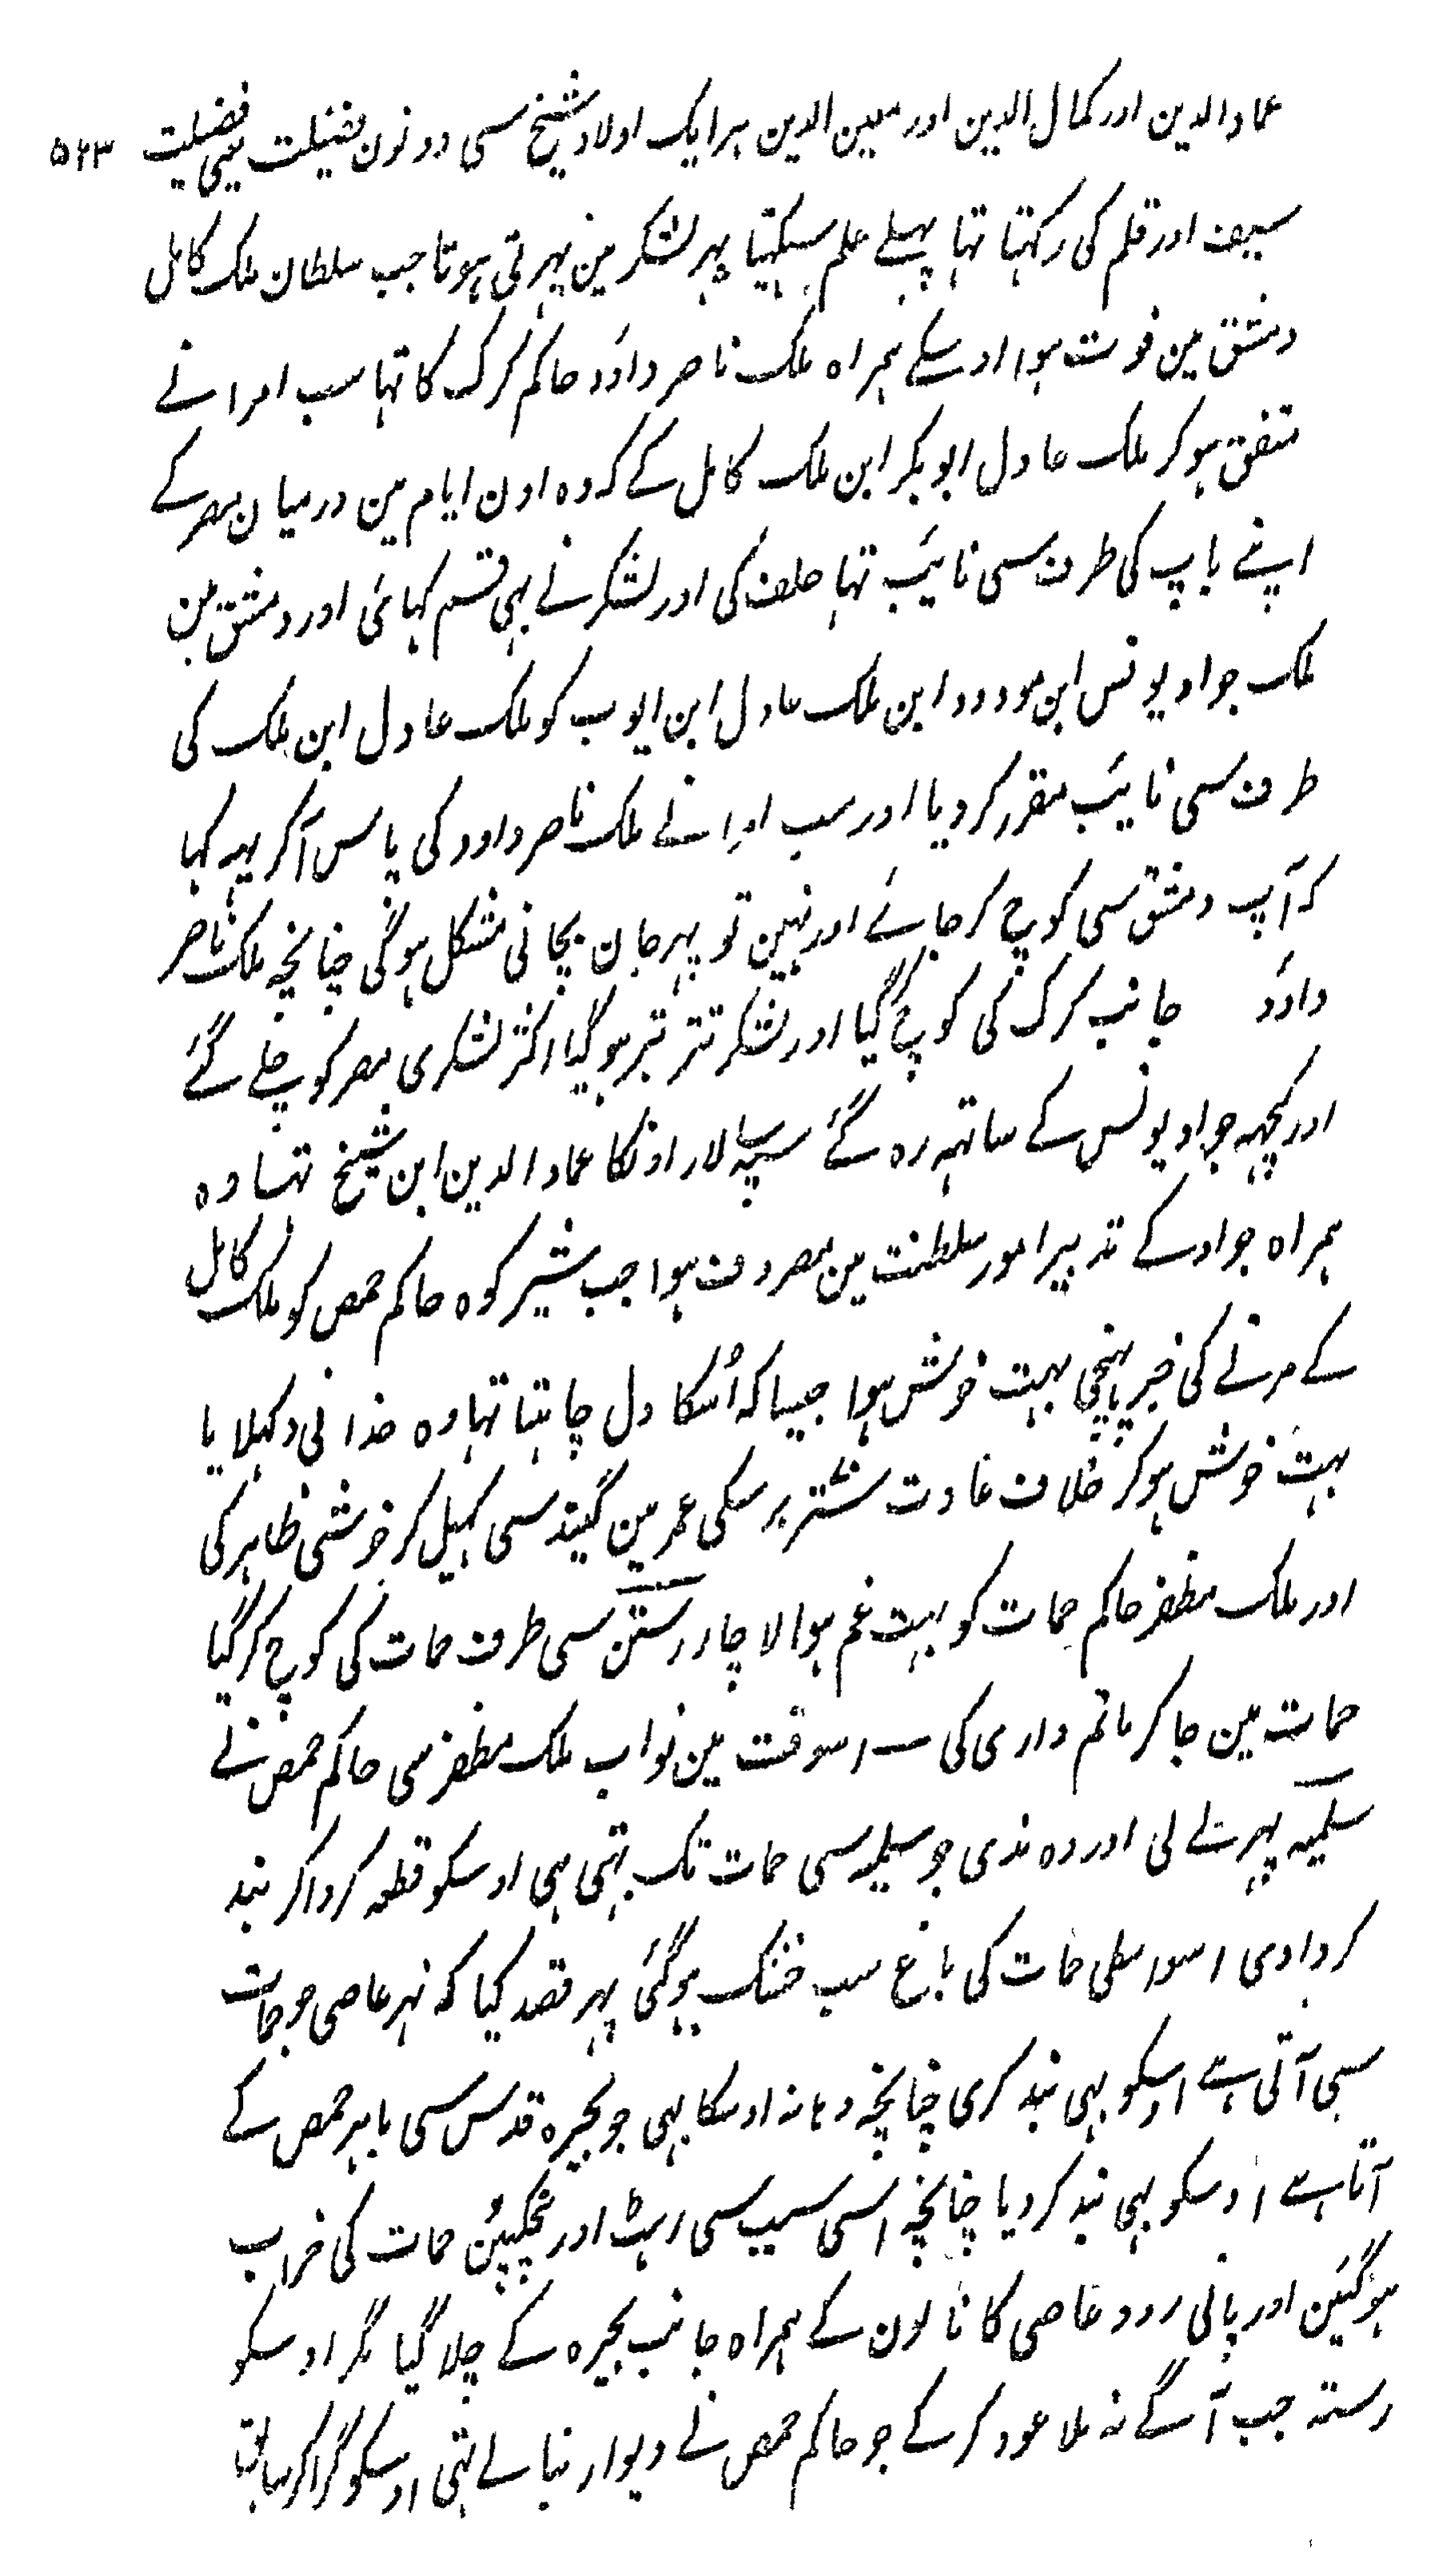 عماد الدین اور کمال الدین اور معین الدین ہر ایک اولاد شیخ سی دونون فضیلت یعنی فضیلت ۵۲۳
سیف اور قلم کی رکہتا تہا پہلے علم سیکہتا پہر لشکر مین بہرتی ہوتا جب سلطان ملک کامل
دمشق مین فوت ہوا اوسکے ہمراہ ملک ناصر داؤد حاکم کرک کا تہا سب امرا نے
متفق ہوکر ملک عادل ابو بکر ابن ملک کامل کے کہ وہ اون ایام مین درمیان مصر کے
اپنے باپ کی طرف سی نائب تہا حلف کی اور لشکر نے بہی قسم کہائی اور دمشق مین
ملک جواد یونس ابن مودود ابن ملک عادل ابن ایوب کو ملک عادل ابن ملک کی
طرف سی نائب مقرر کر دیا اور سب امرا نے ملک ناصر داود کی پاس آکر یہہ کہا
کہ آپ دمشق سی کوچ کر جائے اور نہین تو پہر جان بچانی مشکل ہوگی چنانچہ ملک ناصر
داؤد جانب کرک کی کوچ گیا اور لشکر تتر بتر ہو گیا اکثر لشکری مصر کو چلے گئے
اور کچہہ جواد یونس کے ساتہہ رہ گئے سپہ سالار اونکا عماد الدین ابن شیخ تہا وہ
ہمراہ جواد کے تدبیر امور سلطنت مین مصروف ہوا جب شیر کوہ حاکم حمص کو ملک کامل
کے مرنے کی خبر پہنچی بہت خوش ہوا جیسا کہ اُسکا دل چاہتا تہا وہ خدا نی دکہلایا
بہت خوش ہوکر خلاف عادت ستر برسکی عمر مین گیند سی کہیل کر خوشی ظاہر کی
اور ملک مظفر حاکم حمات کو بہت غم ہوا لاچار رستن سی طرف حمات کی کوچ کر گیا
حمات مین جا کر ماتم داری کی — اسوقت مین نواب ملک مظفر سی حاکم حمص نے
سلمیہ پہر لے لی اور وہ ندی جو سلمیہ سی حمات تک بہتی ہی اوسکو قطعہ کرواکر بند
کروادی اسواسطی حمات کی باغ سب خشک ہوگئی پہر قصد کیا کہ نہر عاصی جو حمات
سی آتی ہے اوسکو بہی بند کری چنانچہ دہانہ اوسکا بہی جو بحیرہ قدس سی باہر حمص کے
آتا ہے اوسکو بہی بند کر دیا چنانچہ اسی سبب سی رہٹ اور چکیین حمات کی خراب
ہوگئین اور پانی رود عاصی کا نالون کے ہمراہ جانب بحیرہ کے چلا گیا مگر اوسکو
رستہ جب آگے نہ ملا عود کر کے جو حاکم حمص نے دیوار بنا لے تہی اوسکو گرا کر سابق